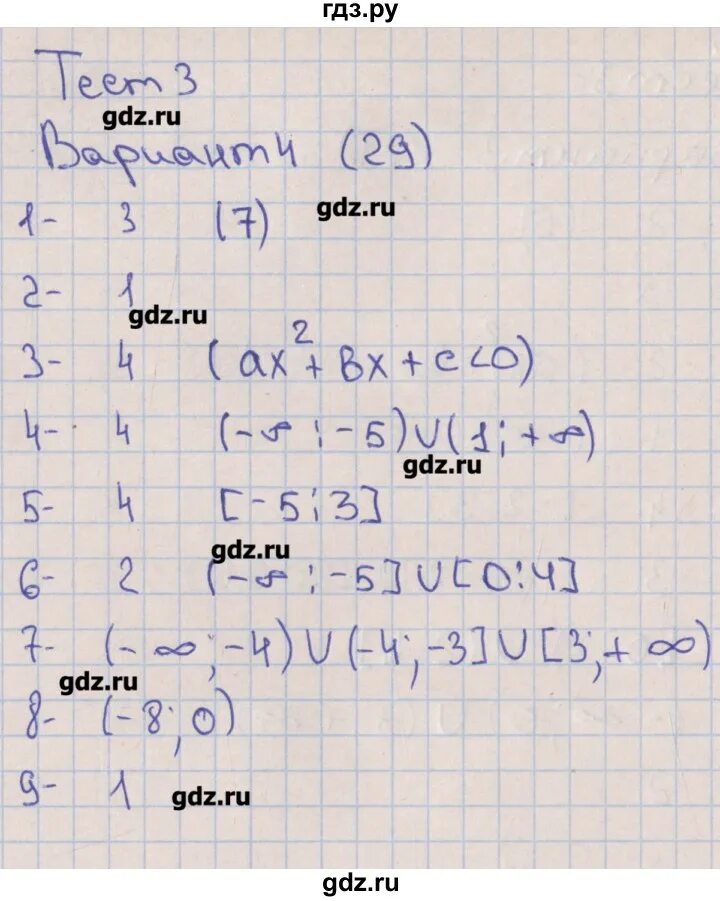 гдз.ру
Тест 3
gdz.ru
Вариант 4 (29)
1- 3 (7) gdz.ru
2- 1
gdz.ru
3- 4 (ax² + bx + c < 0)
4- 4 (-∞; -5) ∪ (1; +∞)
gdz.ru
5- 4 [-5; 3]
gdz.ru
6- 2 (-∞; -5] ∪ [0; 4]
7- (-∞; -4) ∪ (-4; -3] ∪ [3; +∞)
gdz.ru
8- (-8; 0)
9- 1 gdz.ru
gdz.ru